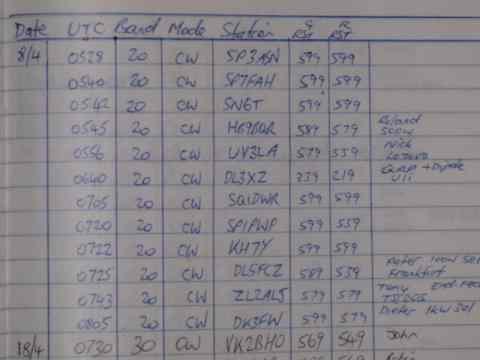 Date UTC Band Mode Station S RST R RST
8/4 0528 20 CW SP3ASN 599 599
0540 20 CW SP7FAH 599 599
0542 20 CW SN6T 599 599
0545 20 CW 589 579 Roland 500W
0556 20 CW UY3LA 579 559 Nick
0640 20 CW DL3XZ 339 219 Uli
0705 20 CW SQ1DWR 599 599
0720 20 CW SP1PWP 599 559
0722 20 CW KH7Y 599 599
0725 20 CW DL5FCZ 589 539 Peter 110W Frankfurt
0743 20 CW ZL2ALJ 579 579 Tony
0805 20 CW DK3FW 599 579 Dieter
18/4 0730 30 CW VK2BHO 569 549 John